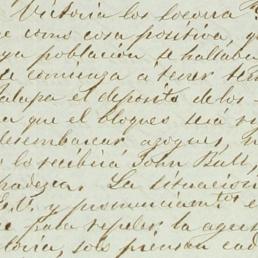 Victoria los socorra
e como cosa positiva, q
ya poblacion se hallaba
se comienza a temer
alapa el deposito de los
a que el bloqueo será
desembarcar azogues,
lo recibira John Bull,
padezca. La situacion
E.U. y pronunciamtos e
e para repeler la agre
toria, solo piensan cad